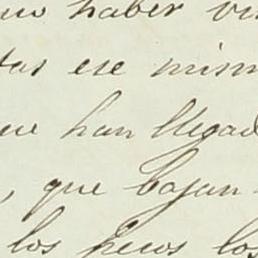 haber
ese mism
han llegad
, que bajan
los los